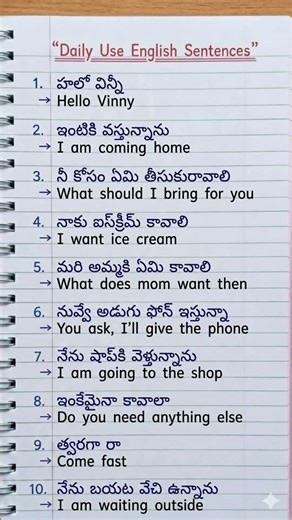 “Daily Use English Sentences”
1. హలో విన్నీ
→ Hello Vinny
2. ఇంటికి వస్తున్నాను
→ I am coming home
3. నీ కోసం ఏమి తీసుకురావాలి
→ What should I bring for you
4. నాకు ఐస్‌క్రీమ్ కావాలి
→ I want ice cream
5. మరి అమ్మకి ఏమి కావాలి
→ What does mom want then
6. నువ్వే అడుగు ఫోన్ ఇస్తున్నా
→ You ask, I’ll give the phone
7. నేను షాప్‌కి వెళ్తున్నాను
→ I am going to the shop
8. ఇంకేమైనా కావాలా
→ Do you need anything else
9. త్వరగా రా
→ Come fast
10. నేను బయట వేచి ఉన్నాను
→ I am waiting outside